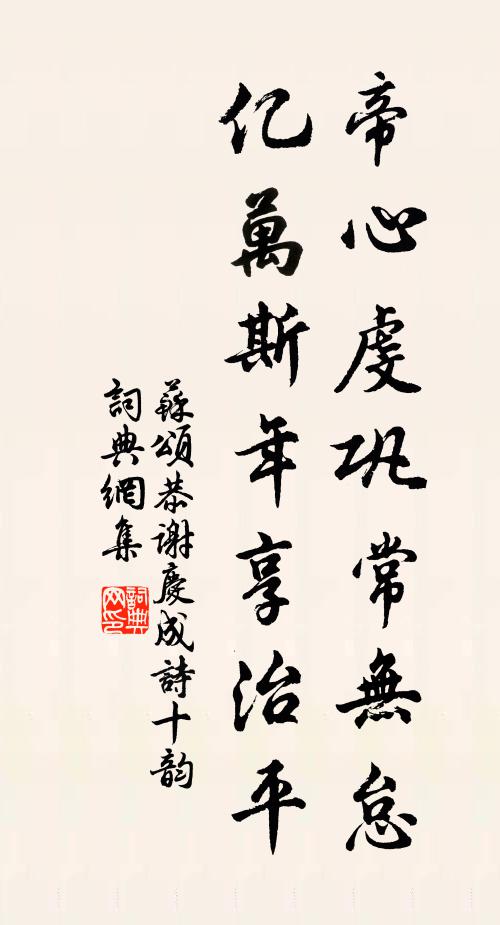 帝心虔巩常無怠
亿萬斯年享治平
蘇頌恭谢慶成詩十韵
詞典網集
詞典网印